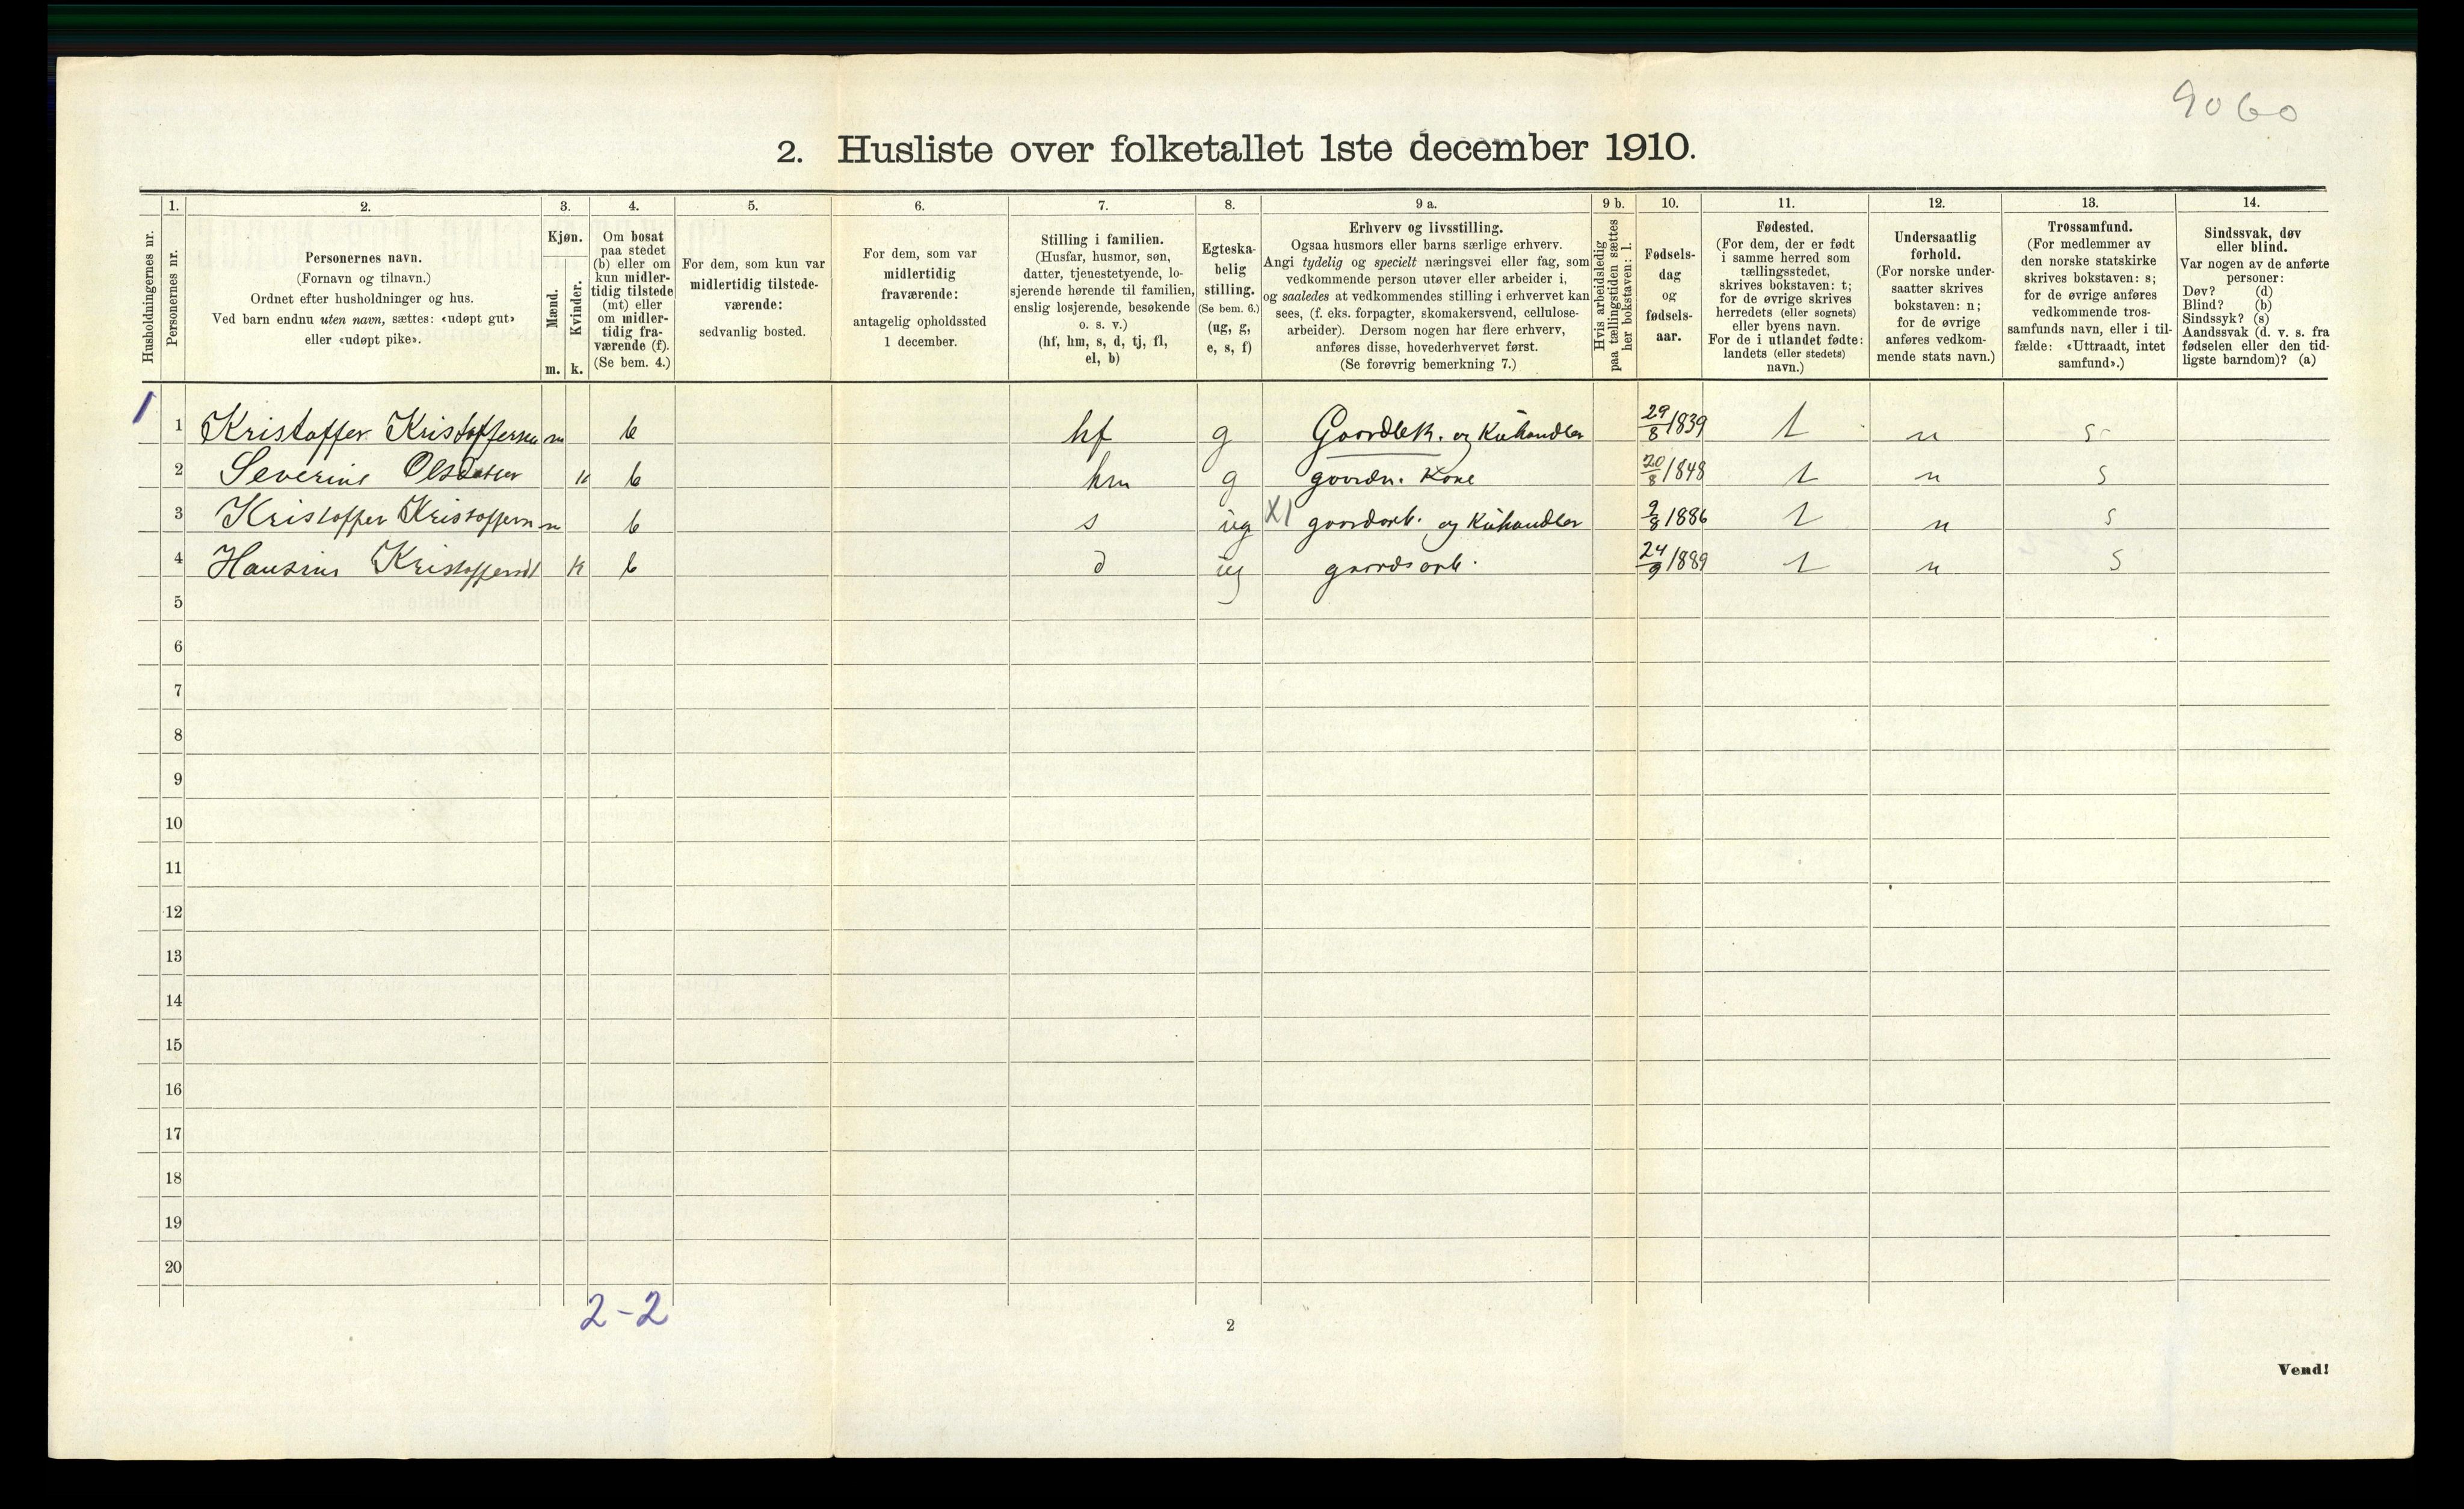 9060
2. Husliste over folketallet 1ste december 1910.
Husholdningernes nr.
1.
Personernes nr.
2.
Personernes navn.
(Fornavn og tilnavn.)
Ordnet efter husholdninger og hus.
Ved barn endnu uten navn, sættes: «udøpt gut»
eller «udøpt pike».
3.
Kjøn.
Mænd.
Kvinder.
m. k.
4.
Om bosat
paa stedet
(b) eller om
kun midler-
tidig tilstede
(mt) eller
om midler-
tidig fra-
værende (f).
(Se bem. 4.)
5.
For dem, som kun var
midlertidig tilstede-
værende:
sedvanlig bosted.
6.
For dem, som var
midlertidig
fraværende:
antagelig opholdssted
1 december.
7.
Stilling i familien.
(Husfar, husmor, søn,
datter, tjenestetyende, lo-
sjerende hørende til familien,
enslig losjerende, besøkende
o. s. v.)
(hf, hm, s, d, tj, fl,
el, b)
8.
Egteska-
belig
stilling.
(Se bem. 6.)
(ug, g,
e, s, f)
9 a.
Erhverv og livsstilling.
Ogsaa husmors eller barns særlige erhverv.
Angi tydelig og specielt næringsvei eller fag, som
vedkommende person utøver eller arbeider i,
og saaledes at vedkommendes stilling i erhvervet kan
sees, (f. eks. forpagter, skomakersvend, cellulose-
arbeider). Dersom nogen har flere erhverv,
anføres disse, hovederhvervet først.
(Se forøvrig bemerkning 7.)
9 b.
Hvis arbeidsledig
paa tællingstiden sættes
her bokstaven: l.
10.
Fødsels-
dag
og
fødsels-
aar.
11.
Fødested.
(For dem, der er født
i samme herred som
tællingsstedet,
skrives bokstaven: t;
for de øvrige skrives
herredets (eller sognets)
eller byens navn.
For de i utlandet fødte:
landets (eller stedets)
navn.)
12.
Undersaatlig
forhold.
(For norske under-
saatter skrives
bokstaven: n;
for de øvrige
anføres vedkom-
mende stats navn.)
13.
Trossamfund.
(For medlemmer av
den norske statskirke
skrives bokstaven: s;
for de øvrige anføres
vedkommende tros-
samfunds navn, eller i til-
fælde: «Uttraadt, intet
samfund».)
14.
Sindssvak, døv
eller blind.
Var nogen av de anførte
personer:
Døv? (d)
Blind? (b)
Sindssyk? (s)
Aandssvak (d. v. s. fra
fødselen eller den tid-
ligste barndom)? (a)
1 1 Kristoffer Kristoffersen m b hf g Gaardbr. og Kuhandler 29/8 1839 t n s
2 Severine Olsdatter k b hm g gaardm. Kone 20/8 1848 t n s
3 Kristoffer Kristoffersn m b s ug X1 gaardarb. og Kuhandler 9/8 1886 t n s
4 Hansine Kristoffersdt k b d ug gaardsarb. 24/9 1889 t n s
5
6
7
8
9
10
11
12
13
14
15
16
17
18
19
20
2-2
2
Vend!